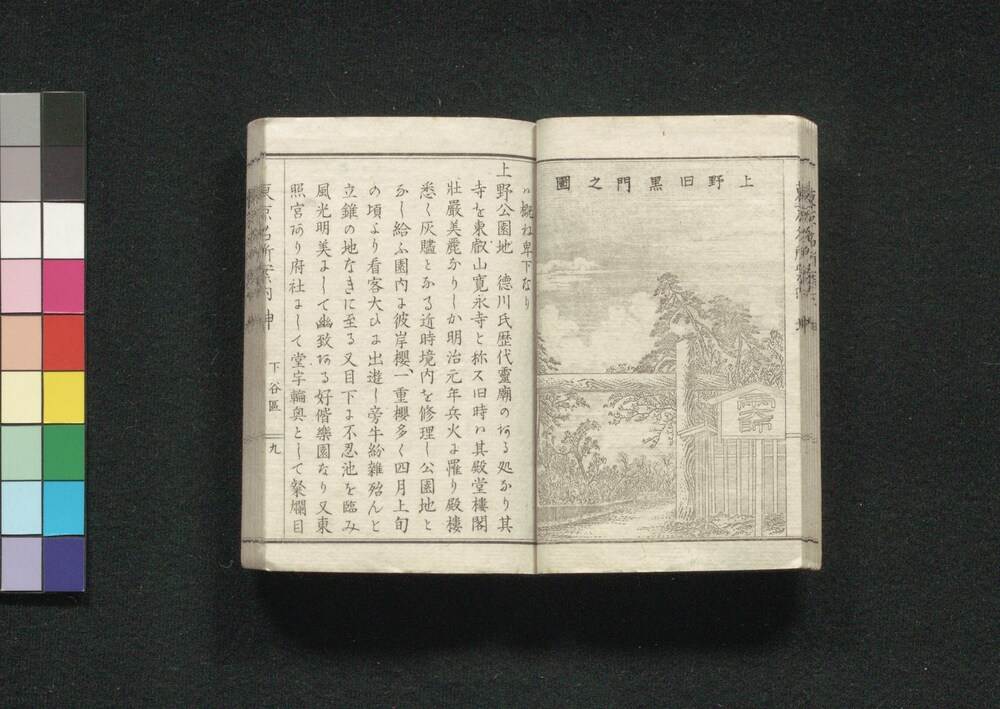 上野旧黒門之圖
ハ概ね卑下なり
上野公園地 徳川氏歴代靈廟のある処なり其
寺を東叡山寛永寺と称ス旧時ハ其殿堂樓閣
壯嚴美麗なりしか明治元年兵火に罹り殿樓
悉く灰燼となる近時境内を修理し公園地と
なし給ふ園内に彼岸櫻一重櫻多く四月上旬
の頃より看客大ひに出遊し旁牛紛雜殆んと
立錐の地なきに至る又目下に不忍池を臨み
風光明美にして幽致ある好偕樂園なり又東
照宮あり府社にして堂宇輪奥として粲爛目
東京名所案内 坤
下谷區
九